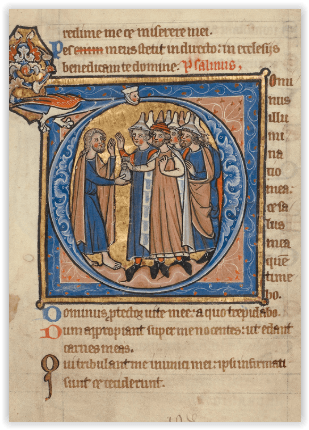 redime me ⁊ miserere mei.
Pes enim meus stetit in directo: in ecclesiis
benedicam te domine. Psalmus,
Domi
nus
illu
mi
na
tio
mea:
⁊ sa
lus
mea
quē
time
bo.
Dominus ꝓtector vite mee: a quo trepidabo.
Dum appropiant super me nocentes: ut edant
carnes meas.
Qui tribulant me inimici mei: ipsi infirmati
sunt ⁊ ceciderunt.